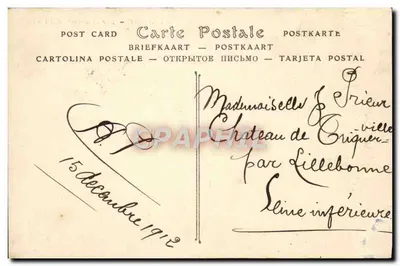 POST CARD Carte Postale POSTKARTE
BRIEFKAART — POSTKAART
CARTOLINA POSTALE — ОТКРЫТОЕ ПИСЬМО — TARJETA POSTAL
Mademoiselle J Prieur
Chateau de Triquerville
par Lillebonne
Seine inférieure
A. P
15 décembre 1912